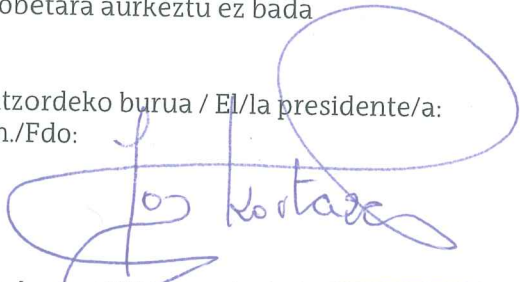 obetara aurkeztu ez bada
tzordeko burua / El/la presidente/a:
n./Fdo:
Jon Kortaza